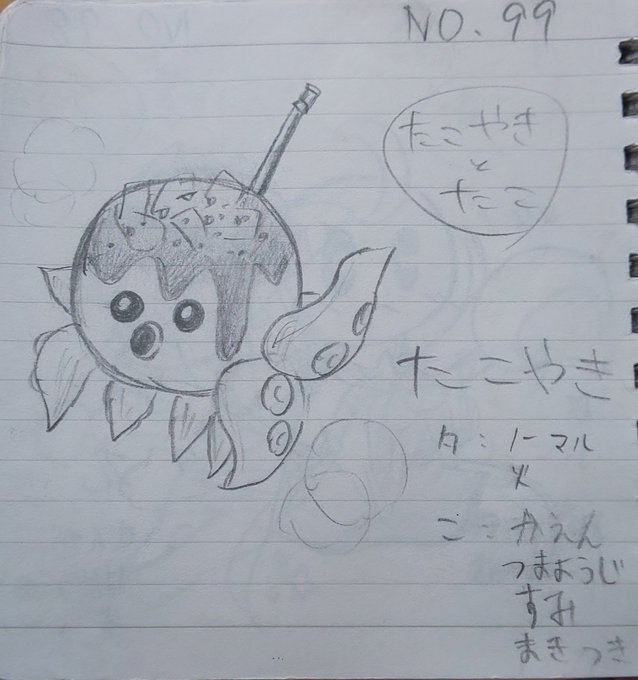 NO. 99
たこやき
と
たこ
たこやき
タ:ノーマル
火
こ:かえん
つまようじ
すみ
まきつき